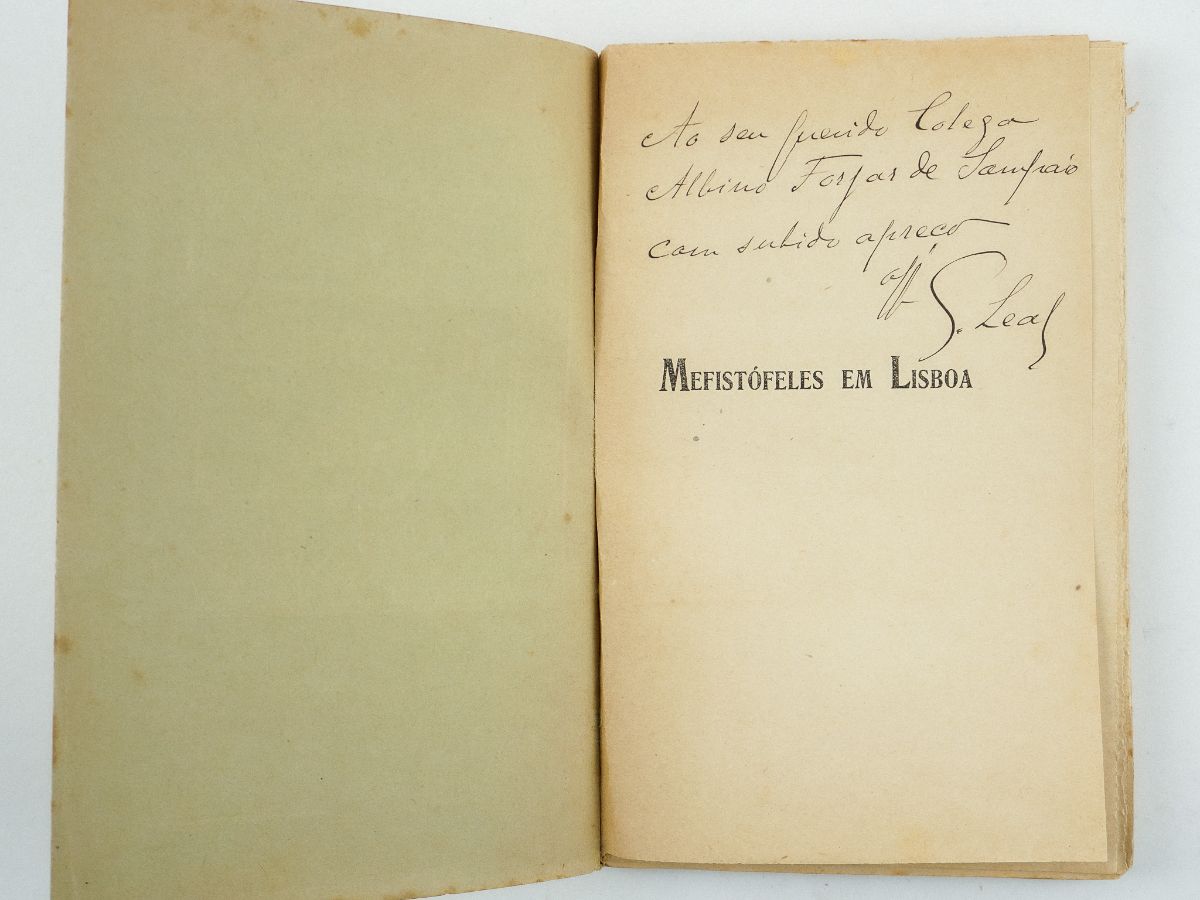 Ao seu querido Colega
Albino Forjas de Sampaio
com subido apreço
off
G. Leal
MEFISTÓFELES EM LISBOA